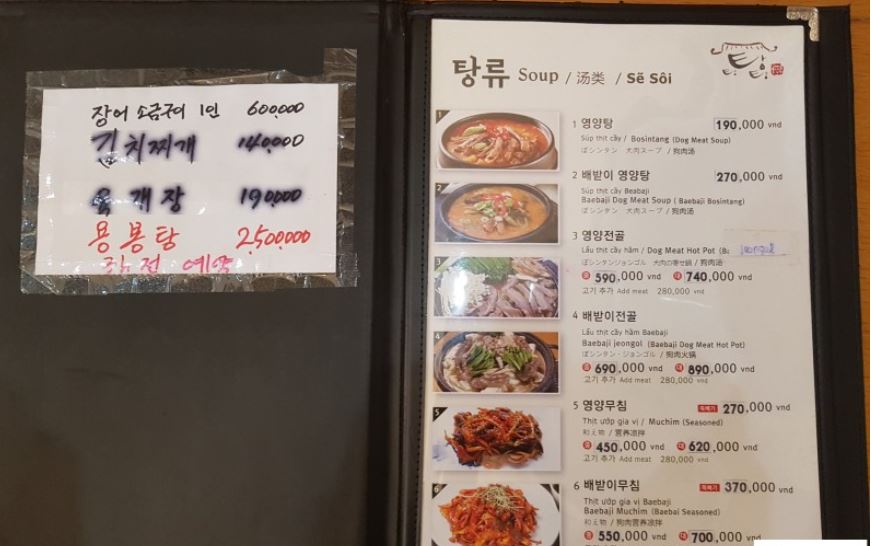 장어 소금구이 1인 600,000
김치찌개 140,000
육개장 190,000
용봉탕 2,500,000
예약
탕류 Soup / 汤类 / Sẽ Sôi
1 영양탕 190,000 vnd
Súp thịt cầy / Bosintang (Dog Meat Soup)
ぽシンタン 犬肉スープ / 狗肉汤
2 배받이 영양탕 270,000 vnd
Súp thịt cầy Beabaji
Baebaji Dog Meat Soup ( Baebaji Bosintang)
ぽシンタン 犬肉スープ / 狗肉汤
3 영양전골
Lẩu thịt cầy hầm / Dog Meat Hot Pot
ぽシンタンジョンゴル 犬肉の寄せ鍋 / 狗肉火锅
중 590,000 vnd 대 740,000 vnd
고기 추가 Add meat 280,000 vnd
4 배받이전골
Lẩu thịt cầy hầm Baebaji
Baebaji jeongol (Baebaji Dog Meat Hot Pot)
ぽシンタン・ジョンゴル / 狗肉火锅
중 690,000 vnd 대 890,000 vnd
고기 추가 Add meat 280,000 vnd
5 영양무침 뚝배기 270,000 vnd
Thịt ướp gia vị / Muchim (Seasoned)
和え物 / 营养凉拌
중 450,000 vnd 대 620,000 vnd
고기 추가 Add meat 280,000 vnd
6 배받이무침 뚝배기 370,000 vnd
Thịt ướp gia vị Baebaji
Baebaji Muchim (Baebai Seasoned)
和え物 / 狗肉营养凉拌
중 550,000 vnd 대 700,000 vnd